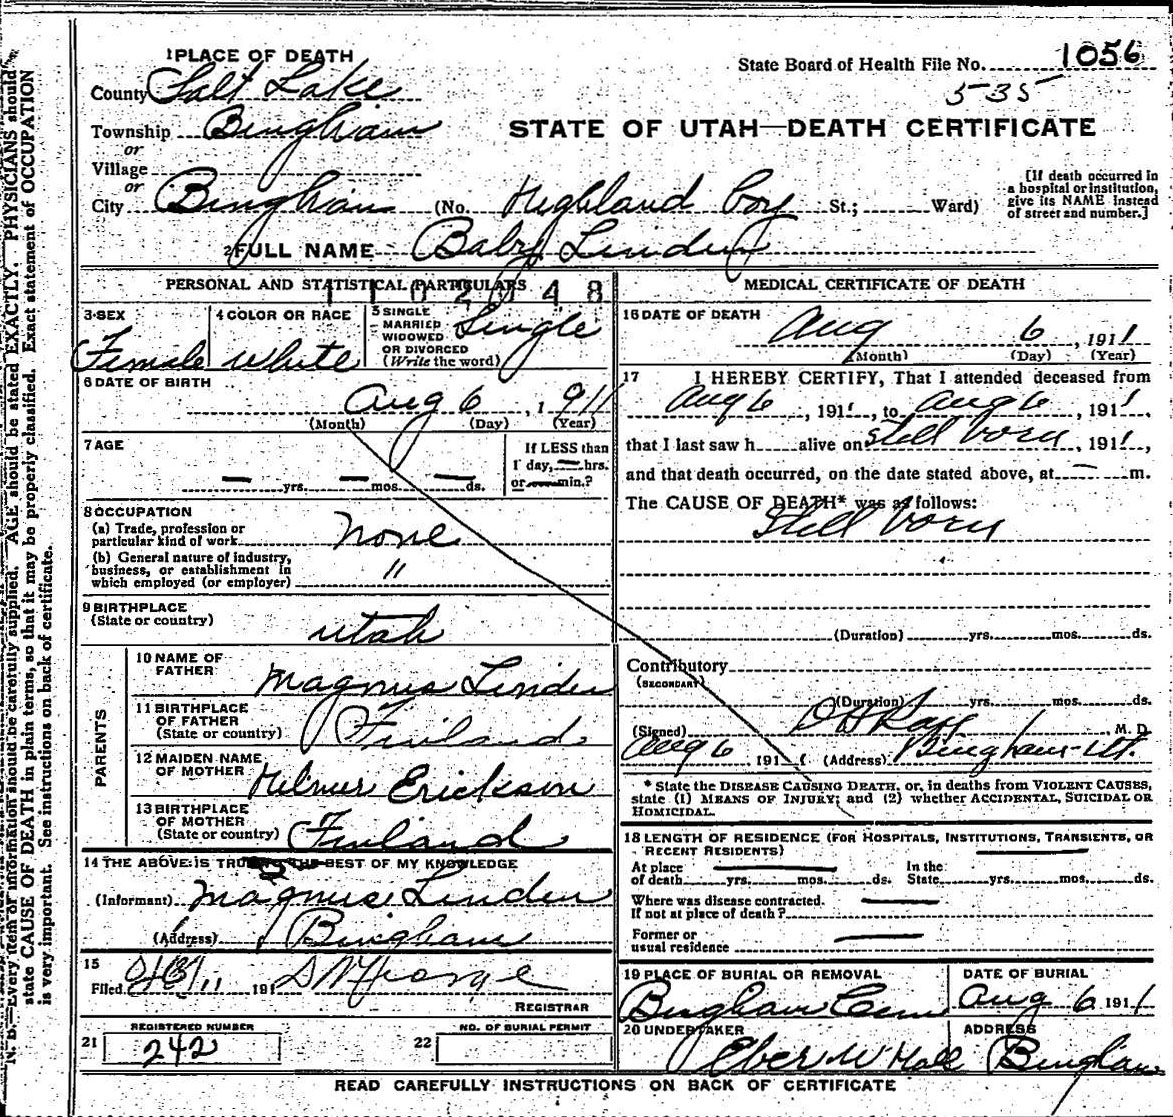 1 PLACE OF DEATH
State Board of Health File No. 1056
535
County Salt Lake
Township Bingham
STATE OF UTAH—DEATH CERTIFICATE
or
Village
or
City Bingham (No. Highland Boy St.; Ward)
[If death occurred in
a hospital or institution,
give its NAME instead
of street and number.]
2 FULL NAME Baby Linder
PERSONAL AND STATISTICAL PARTICULARS
1102048
3 SEX
Female
4 COLOR OR RACE
White
5 SINGLE
MARRIED
WIDOWED
OR DIVORCED
(Write the word)
Single
6 DATE OF BIRTH
Aug 6, 1911
(Month) (Day) (Year)
7 AGE
— yrs. — mos. — ds.
If LESS than
1 day, — hrs.
or — min.?
8 OCCUPATION
(a) Trade, profession or
particular kind of work None
(b) General nature of industry,
business, or establishment in
which employed (or employer) "
9 BIRTHPLACE
(State or country)
Utah
PARENTS
10 NAME OF
FATHER
Magnus Linder
11 BIRTHPLACE
OF FATHER
(State or country)
Finland
12 MAIDEN NAME
OF MOTHER
Erickson
13 BIRTHPLACE
OF MOTHER
(State or country)
Finland
14 THE ABOVE IS TRUE TO THE BEST OF MY KNOWLEDGE
(Informant) Magnus Linder
(Address) Bingham
15
Filed 191
REGISTRAR
REGISTERED NUMBER
21 242
NO. OF BURIAL PERMIT
22
MEDICAL CERTIFICATE OF DEATH
16 DATE OF DEATH
Aug 6, 1911
(Month) (Day) (Year)
17 I HEREBY CERTIFY, That I attended deceased from
Aug 6, 1911, to Aug 6, 1911,
that I last saw h alive on still born, 1911,
and that death occurred, on the date stated above, at — m.
The CAUSE OF DEATH* was as follows:
Still born
(Duration) yrs. mos. ds.
Contributory
(SECONDARY)
(Duration) yrs. mos. ds.
(Signed) M. D.
Aug 6 1911 (Address) Bingham Ut.
* State the DISEASE CAUSING DEATH, or, in deaths from VIOLENT CAUSES,
state (1) MEANS OF INJURY; and (2) whether ACCIDENTAL, SUICIDAL OR
HOMICIDAL.
18 LENGTH OF RESIDENCE (FOR HOSPITALS, INSTITUTIONS, TRANSIENTS, OR
RECENT RESIDENTS)
At place
of death yrs. mos. ds.
In the
State yrs. mos. ds.
Where was disease contracted.
If not at place of death?
Former or
usual residence
19 PLACE OF BURIAL OR REMOVAL
Bingham Cem
DATE OF BURIAL
Aug 6 1911
20 UNDERTAKER
Eber W Hall
ADDRESS
Bingham
READ CAREFULLY INSTRUCTIONS ON BACK OF CERTIFICATE
N. B.—Every item of information should be carefully supplied. AGE should be stated EXACTLY. PHYSICIANS should
state CAUSE OF DEATH in plain terms, so that it may be properly classified. Exact statement of OCCUPATION
is very important. See instructions on back of certificate.